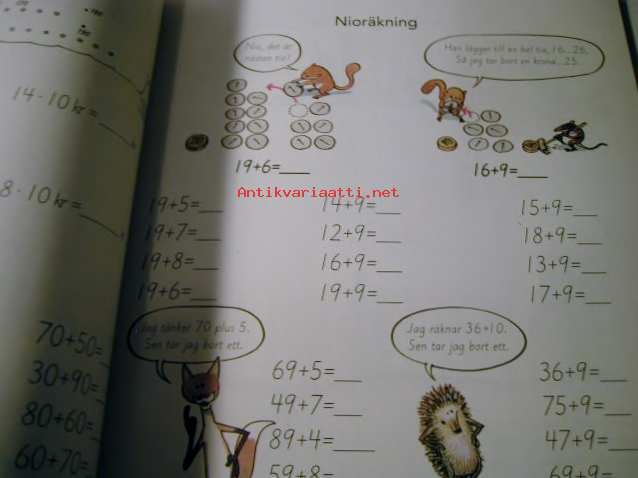 Nioräkning
Nio, det är
nästan tio!
Han lägger till en hel tia, 16...26.
Så jag tar bort en krona...25.
19+6=
16+9=
Antikvariaatti.net
14·10 kr=
8·10 kr=
19+5=
14+9=
15+9=
19+7=
12+9=
18+9=
19+8=
16+9=
13+9=
19+6=
19+9=
17+9=
Jag tänker 70 plus 5.
Sen tar jag bort ett.
Jag räknar 36+10.
Sen tar jag bort ett.
70+50=
30+90=
80+60=
60+70=
69+5=
49+7=
89+4=
59+8=
36+9=
75+9=
47+9=
69+9=